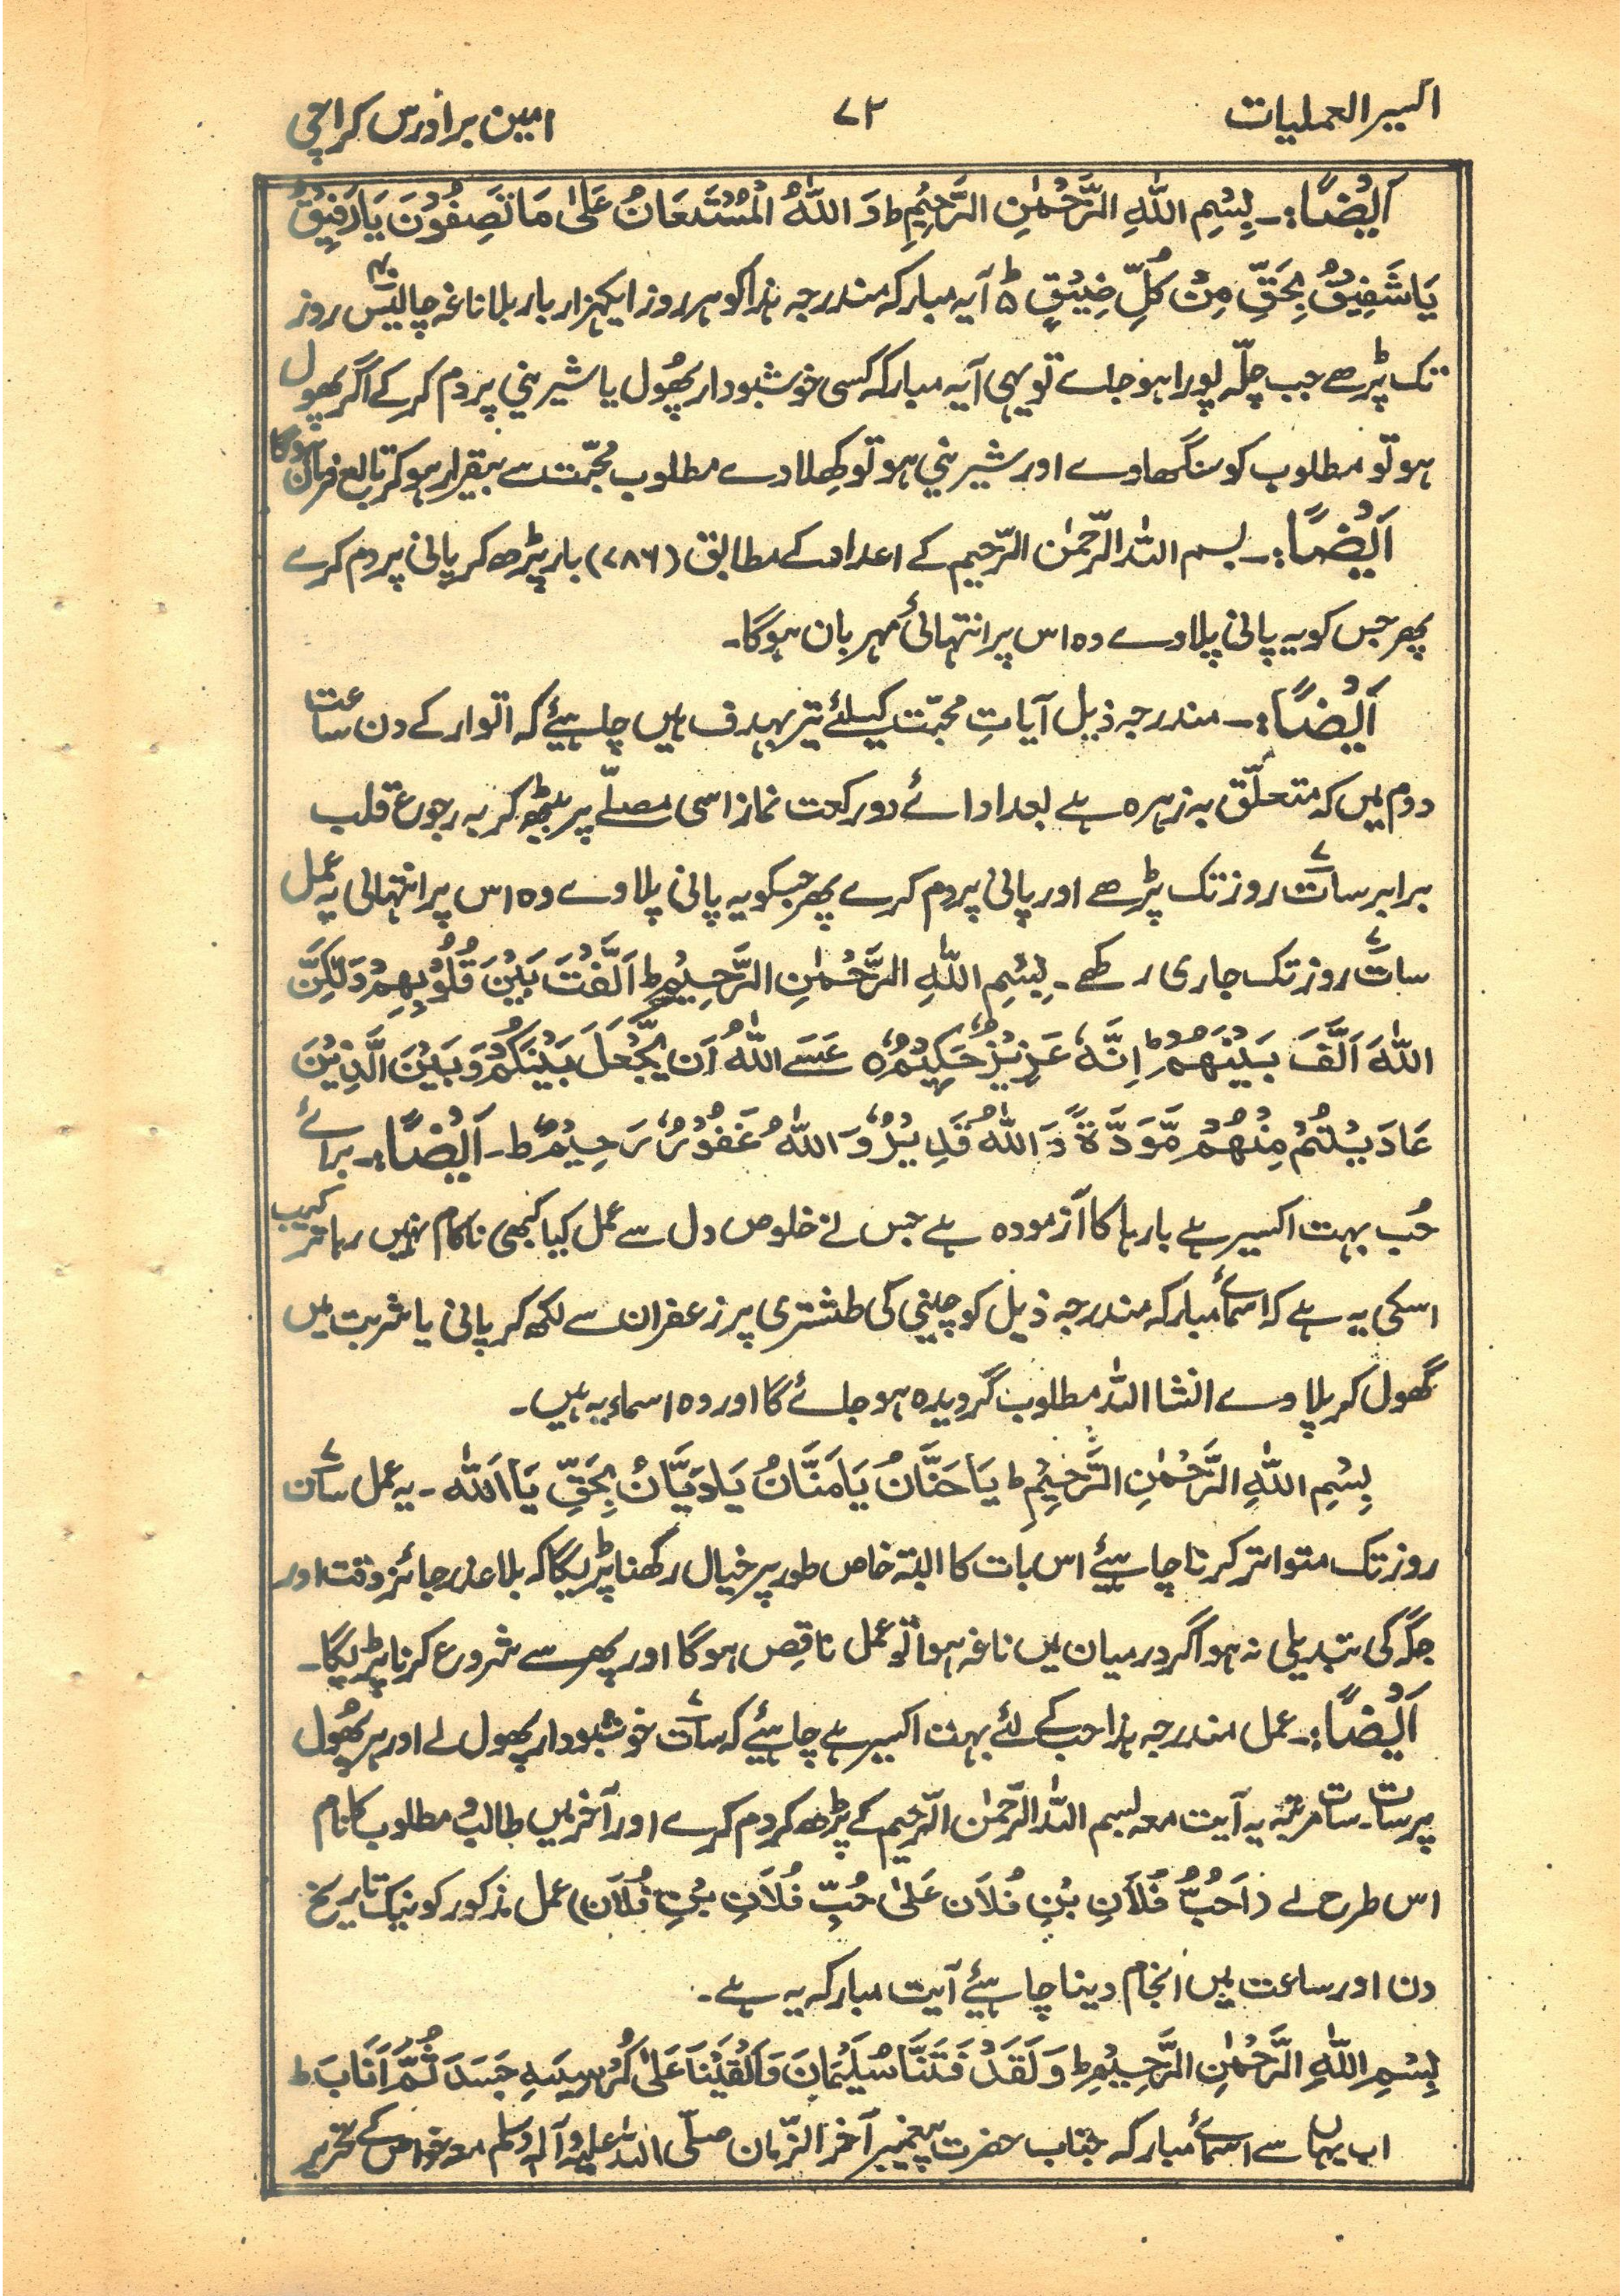 اکسیر العملیات ۷۲ امین برادرس کراچی
اَیْضًا:۔ بِسْمِ اللّٰہِ الرَّحْمٰنِ الرَّحِیْمِ ط وَ اللّٰہُ الْمُسْتَعَانُ عَلٰی مَا تَصِفُوْنَ یَا رَفِیْقُ
یَا شَفِیْقُ بِحَقِّ مِنْ کُلِّ ضِیْقٍ ط آیہ مبارکہ مندرجہ ہذا کو ہر روز ایکہزار بار بلا ناغہ چالیس۴۰ روز
تک پڑھے جب چلّہ پورا ہو جاے تو یہی آیہ مبارکہ کسی خوشبودار پھُول یا شیرینی پر دم کر کے اگر پھول
ہو تو مطلوب کو سنگھاوے اور شیرینی ہو تو کھِلا دے مطلوب محبّت سے بیقرار ہو کر تابع فرمان ہوگا
اَیْضًا:۔ بسم اللہ الرّحمٰن الرّحیم کے اعداد کے مطابق (۷۸۶) بار پڑھ کر پانی پر دم کرے
پھر جس کو یہ پانی پلاوے وہ اس پر انتہائی مہربان ہوگا۔
اَیْضًا:۔ مندرجہ ذیل آیاتِ محبّت کیلئے تیر بہدف ہیں چاہیئے کہ اتوار کے دن ساعت
دوم میں کہ متعلّق بہ زہرہ ہے بعد اداۓ دو رکعت نماز اسی مصلّے پر بیٹھ کر بہ رجوع قلب
برابر سات۷ روز تک پڑھے اور پانی پر دم کرے پھر جسکو یہ پانی پلاوے وہ اس پر انتہائی یہ عمل
سات۷ روز تک جاری رکھے۔ بِسْمِ اللّٰہِ الرَّحْمٰنِ الرَّحِیْمِ ط اَلَّفْتَ بَیْنَ قُلُوْبِھِمْ وَلٰکِنَّ
اللّٰہَ اَلَّفَ بَیْنَھُمْ ط اِنَّہٗ عَزِیْزٌ حَکِیْمٌ ہ عَسَے اللّٰہُ اَن یَّجْعَلَ بَیْنَکُمْ وَ بَیْنَ الَّذِیْنَ
عَادَیْتُمْ مِنْھُمْ مَّوَدَّۃً وَ اللّٰہُ قَدِیْرٌ وَ اللّٰہُ غَفُوْرٌ رَحِیْمٌ ط۔ اَیْضًا:۔ براۓ
حُب بہت اکسیر ہے بارہا کا آزمودہ ہے جس نے خلوص دل سے عمل کیا کبھی ناکام نہیں رہا ترکیب
اسکی یہ ہے کہ اسماۓ مبارکہ مندرجہ ذیل کو چینی کی طشتری پر زعفران سے لکھ کر پانی یا شربت میں
گھول کر پلاوے انشا اللہ مطلوب گرویدہ ہو جاۓ گا اور وہ اسماء یہ ہیں۔
بِسْمِ اللّٰہِ الرَّحْمٰنِ الرَّحِیْمِ ط یَا حَنَّانُ یَا مَنَّانُ یَا دَیَّانُ بِحَقِّ یَا اَللّٰہ۔ یہ عمل سات۷
روز تک متواتر کرنا چاہیئے اس بات کا البتہ خاص طور پر خیال رکھنا پڑیگا کہ بلا عذر جائز وقت اور
جگہ کی تبدیلی نہ ہو اگر درمیان میں ناغہ ہوا تو عمل ناقِص ہوگا اور پھر سے شروع کرنا پڑیگا۔
اَیْضًا:۔ عمل مندرجہ ہذا حب کے لئے بہت اکسیر ہے چاہیئے کہ سات۷ خوشبودار پھول لے اور ہر پھُول
پر سات۔سات مرتبہ یہ آیت معہ بسم اللہ الرّحمٰن الرّحیم کے پڑھ کر دم کرے اور آخر میں طالب و مطلوب کا نام
اس طرح لے (اَحَبُّ فُلَاَنِ بْنِ فُلَاَن عَلیٰ حُبِّ فُلَاَنِ بْنِ فُلَاَن) عمل مذکور کو نیک تاریخ
دن اور ساعت میں انجام دینا چاہیئے آیت مبارکہ یہ ہے۔
بِسْمِ اللّٰہِ الرَّحْمٰنِ الرَّحِیْمِ ط وَ لَقَدْ فَتَنَّا سُلَیْمَانَ وَ اَلْقَیْنَا عَلٰی کُرْسِیِّہٖ جَسَدَ ثُمَّ اَنَابَ ط
اب یہاں سے اسماۓ مبارکہ جناب حضرت پیغمبر آخر الزّمان صلّی اللہ علیہ وآلہ وسلم معہ خواص کے تحریر